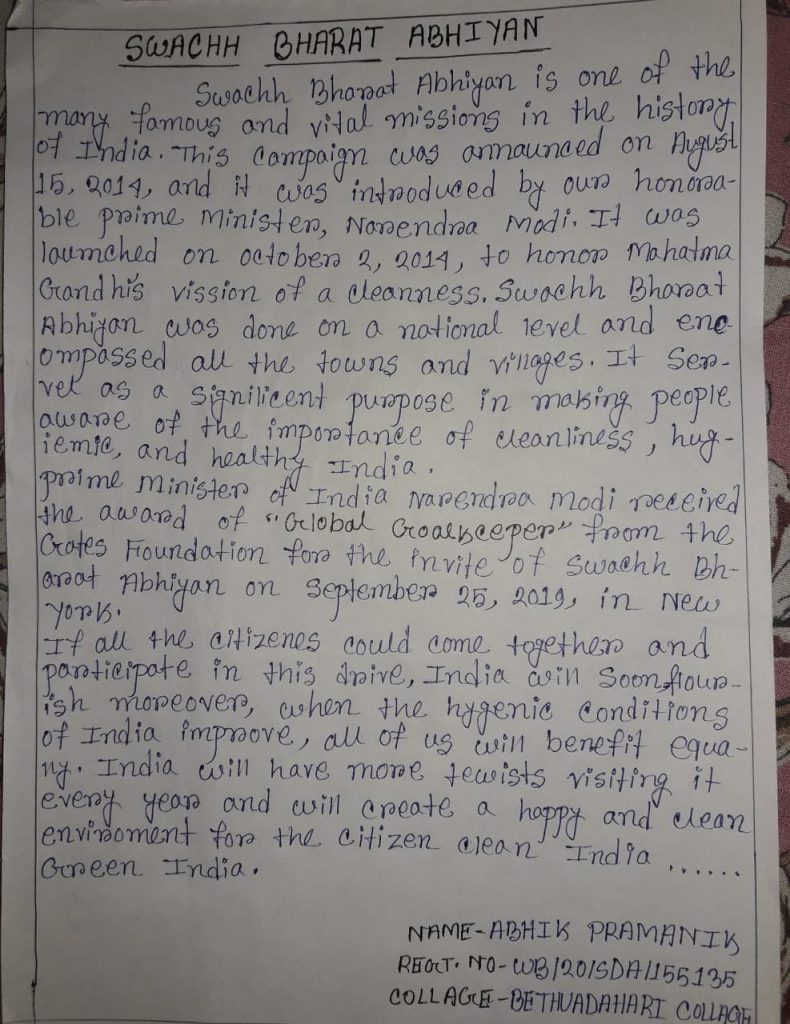 SWACHH BHARAT ABHIYAN
Swachh Bharat Abhiyan is one of the
many famous and vital missions in the history
of India. This campaign was announced on August
15, 2014, and it was introduced by our honora-
ble prime Minister, Narendra Modi. It was
launched on october 2, 2014, to honor Mahatma
Gandhi's vission of a cleanness. Swachh Bharat
Abhiyan was done on a national level and enc-
ompassed all the towns and villages. It Ser-
vet as a signilicent purpose in making people
aware of the importance of cleanliness, hug-
iemic, and healthy India.
prime Minister of India Narendra Modi received
the award of "Global Goalkceeper" from the
Gates Foundation for the invite of Swachh Bh-
arat Abhiyan on September 25, 2019, in New
York.
If all the citizenes could come together and
participate in this drive, India will Soon flour-
ish moreover, when the hygenic conditions
of India improve, all of us will benefit equa-
lly. India will have more tewists visiting it
every year and will create a happy and clean
enviroment for the citizen clean India ......
Green India.
NAME-ABHIK PRAMANIK
REGT. NO-WB/20/SDA/155135
COLLAGE-BETHUADAHARI COLLAGE